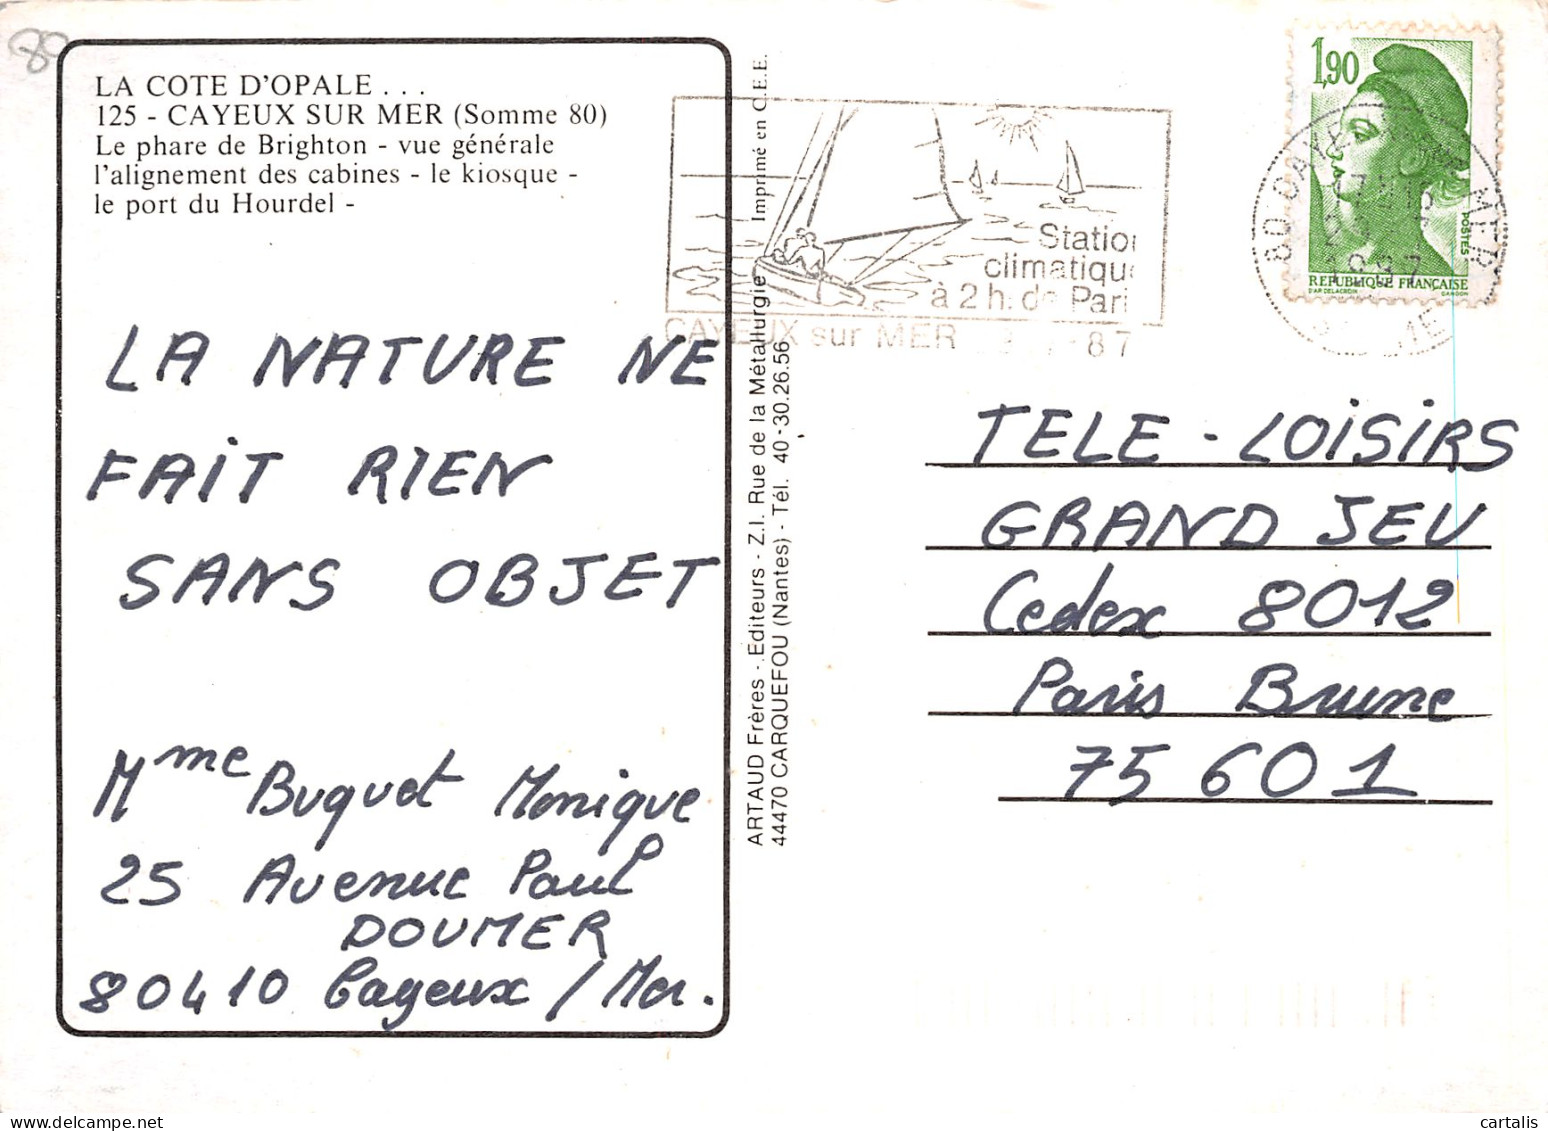 80
LA COTE D'OPALE . . .
125 - CAYEUX SUR MER (Somme 80)
Le phare de Brighton - vue générale
l'alignement des cabines - le kiosque -
le port du Hourdel -
LA NATURE NE
FAIT RIEN
SANS OBJET
Mme Buquet Monique
25 Avenue Paul
DOUMER
80410 Cayeux / Mer.
ARTAUD Frères - Editeurs - Z.I. Rue de la Métallurgie Imprimé en C.E.E.
44470 CARQUEFOU (Nantes) - Tél. 40-30.26.56
Statio
climatiqu
à 2 h. de Pari
CAYEUX sur MER 87
1,90
POSTES
REPUBLIQUE FRANÇAISE
D'AP. DELACROIX GANDON
80 CAYEUX MER
TELE - LOISIRS
GRAND JEU
Cedex 8012
Paris Brune
75 601
cartalis
www.delcampe.net